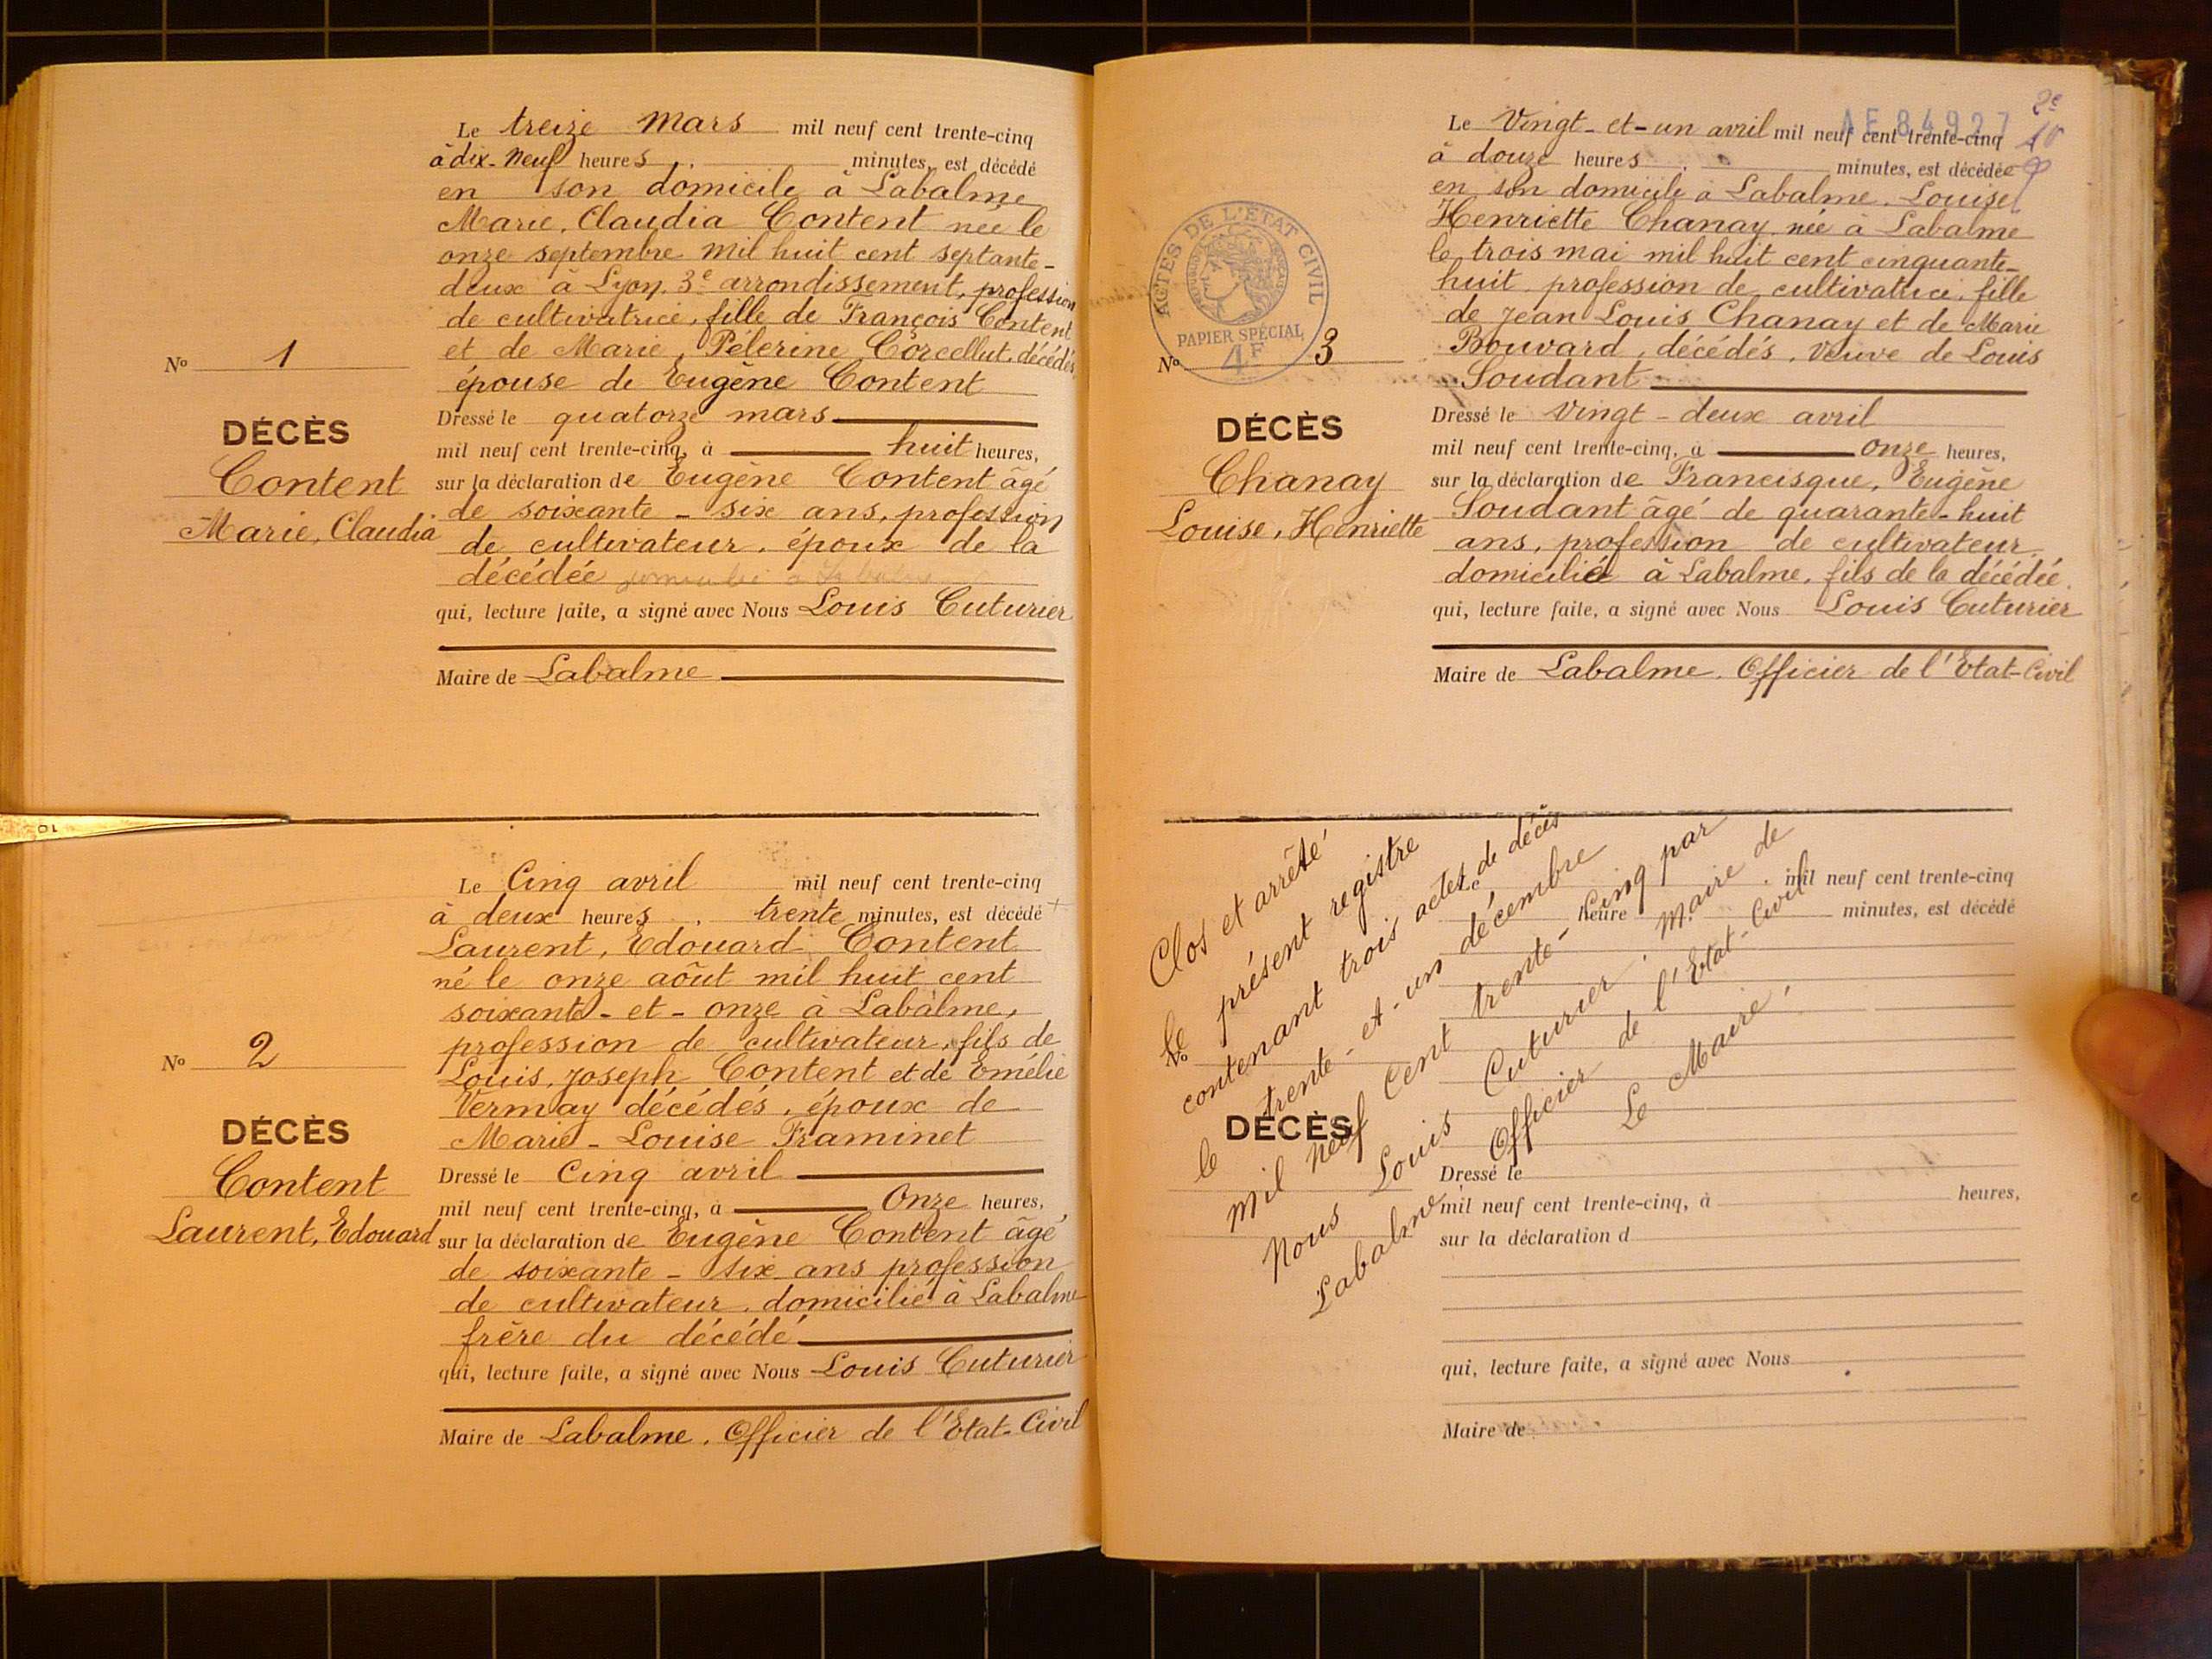 Le treize mars mil neuf cent trente-cinq
à dix-neuf heures . minutes, est décédé
en son domicile à Labalme
Marie, Claudia Content née le
onze septembre mil huit cent septante-
deux à Lyon. 3e arrondissement, profession
de cultivatrice, fille de François Content
et de Marie, Pélerine Corcellut, décédés,
épouse de Eugène Content
No 1
DÉCÈS
Content
Marie, Claudia
Dressé le quatorze mars
mil neuf cent trente-cinq, à huit heures,
sur la déclaration de Eugène Content âgé
de soixante - six ans, profession
de cultivateur, époux de la
décédée
qui, lecture faite, a signé avec Nous Louis Cuturier
Maire de Labalme
Le Cinq avril mil neuf cent trente-cinq
à deux heures . trente minutes, est décédé
Laurent, Edouard Content
né le onze août mil huit cent
soixante - et - onze à Labalme,
profession de cultivateur, fils de
Louis, Joseph Content et de Emélie
Vermay décédés, époux de
Marie - Louise Framinet
No 2
DÉCÈS
Content
Laurent, Edouard
Dressé le Cinq avril
mil neuf cent trente-cinq, à Onze heures,
sur la déclaration de Eugène Content âgé
de soixante - six ans profession
de cultivateur, domicilié à Labalme
frère du décédé
qui, lecture faite, a signé avec Nous Louis Cuturier
Maire de Labalme. Officier de l'Etat-Civil
AE 84927
2e
Le Vingt-et-un avril mil neuf cent trente-cinq
à douze heures . minutes, est décédée
en son domicile à Labalme. Louise
Henriette Chanay, née à Labalme
le trois mai mil huit cent cinquante-
huit, profession de cultivatrice, fille
de Jean Louis Chanay et de Marie
Bouvard, décédés, veuve de Louis
Soudant
ACTES DE L'ÉTAT CIVIL
PAPIER SPÉCIAL
4F
No 3
DÉCÈS
Chanay
Louise, Henriette
Dressé le Vingt - deux avril
mil neuf cent trente-cinq, à onze heures,
sur la déclaration de Francisque, Eugène
Soudant âgé de quarante-huit
ans, profession de cultivateur
domicilié à Labalme, fils de la décédée.
qui, lecture faite, a signé avec Nous Louis Cuturier
Maire de Labalme. Officier de l'Etat-Civil
Clos et arrêté
le présent registre
contenant trois actes de décès
le trente - et - un décembre
mil neuf cent trente - cinq par
Nous Louis Cuturier. Maire de
Labalme, Officier de l'Etat-Civil
Le Maire,
Le mil neuf cent trente-cinq
heure minutes, est décédé
No
DÉCÈS
Dressé le
mil neuf cent trente-cinq, à heures,
sur la déclaration d
qui, lecture faite, a signé avec Nous
Maire de